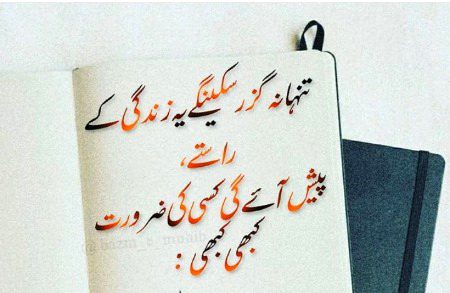 تنہا نہ گزر سکینگے یہ زندگی کے
راستے،
پیش آئے گی کسی کی ضرورت
کبھی کبھی :